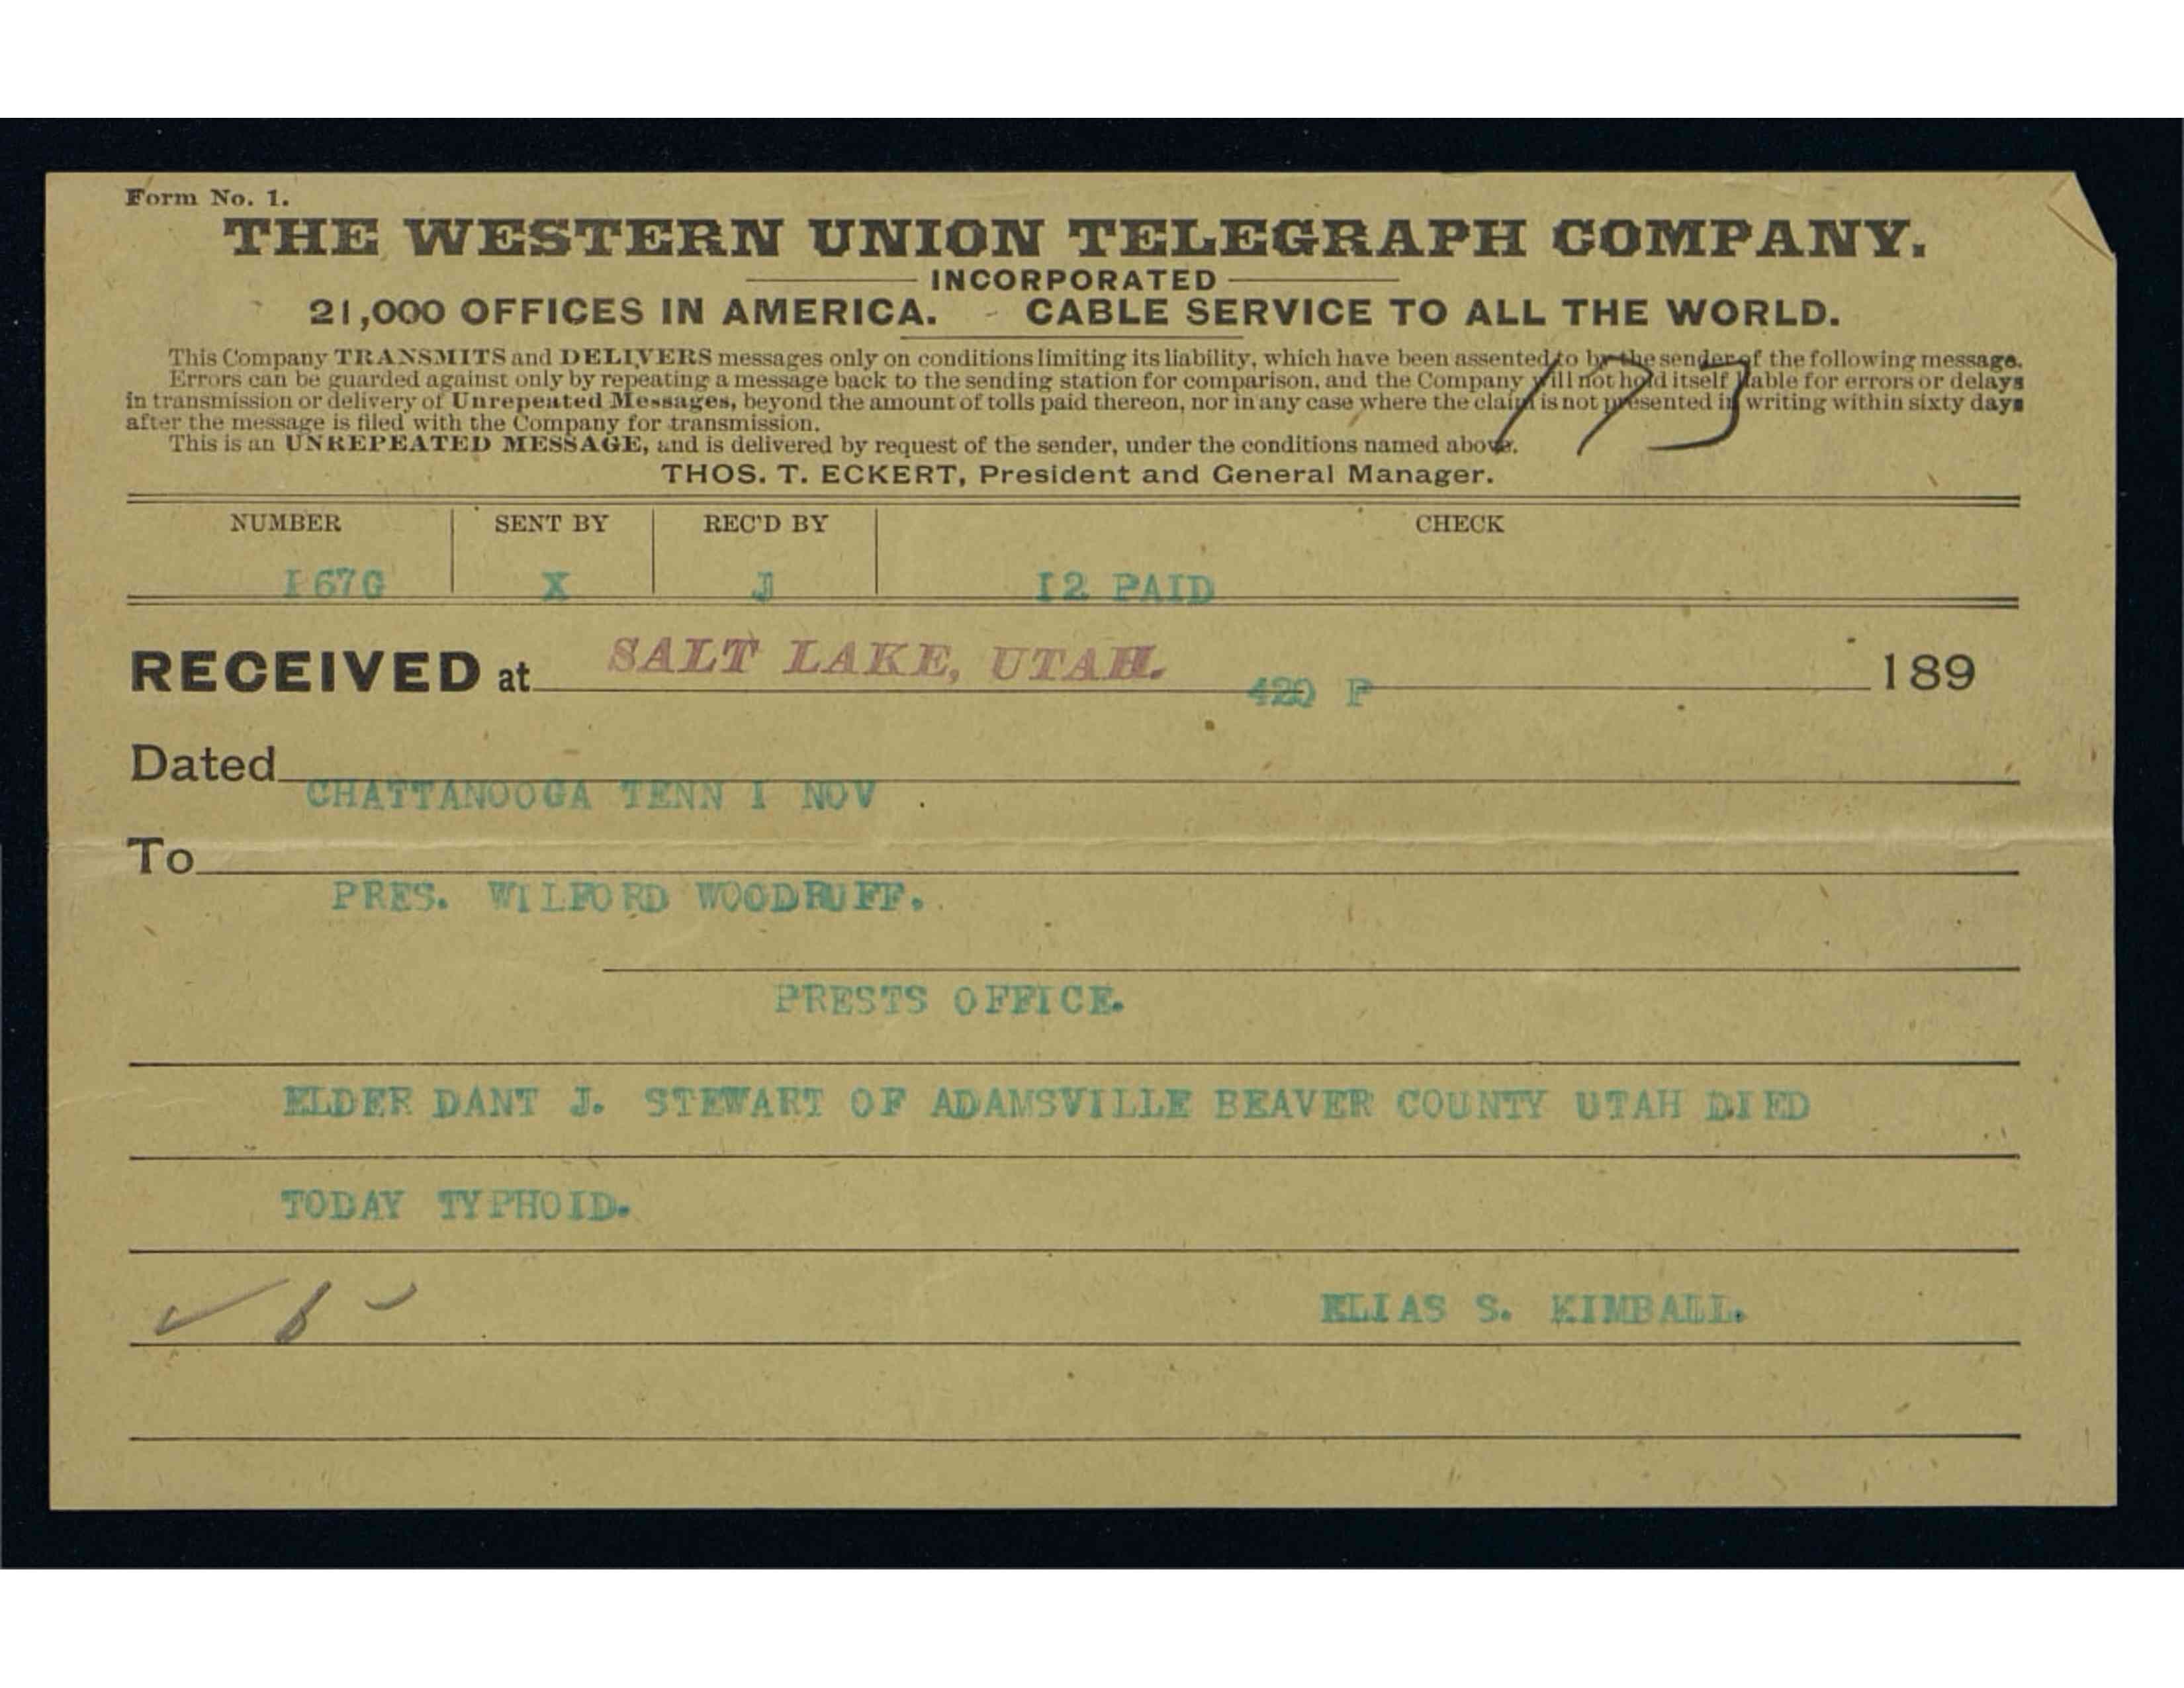 Form No. 1.
THE WESTERN UNION TELEGRAPH COMPANY.
INCORPORATED
21,000 OFFICES IN AMERICA. - CABLE SERVICE TO ALL THE WORLD.
This Company TRANSMITS and DELIVERS messages only on conditions limiting its liability, which have been assented to by the sender of the following message.
Errors can be guarded against only by repeating a message back to the sending station for comparison, and the Company will not hold itself liable for errors or delays
in transmission or delivery of Unrepeated Messages, beyond the amount of tolls paid thereon, nor in any case where the claim is not presented in writing within sixty days
after the message is filed with the Company for transmission.
This is an UNREPEATED MESSAGE, and is delivered by request of the sender, under the conditions named above.
173
THOS. T. ECKERT, President and General Manager.
NUMBER SENT BY REC'D BY CHECK
I67G X J I2 PAID
RECEIVED at SALT LAKE, UTAH. 420 P 189
Dated
CHATTANOOGA TENN I NOV
To
PRES. WILFORD WOODRUFF.
PRESTS OFFICE.
ELDER DANT J. STEWART OF ADAMSVILLE BEAVER COUNTY UTAH DIED
TODAY TYPHOID.
ELIAS S. KIMBALL.